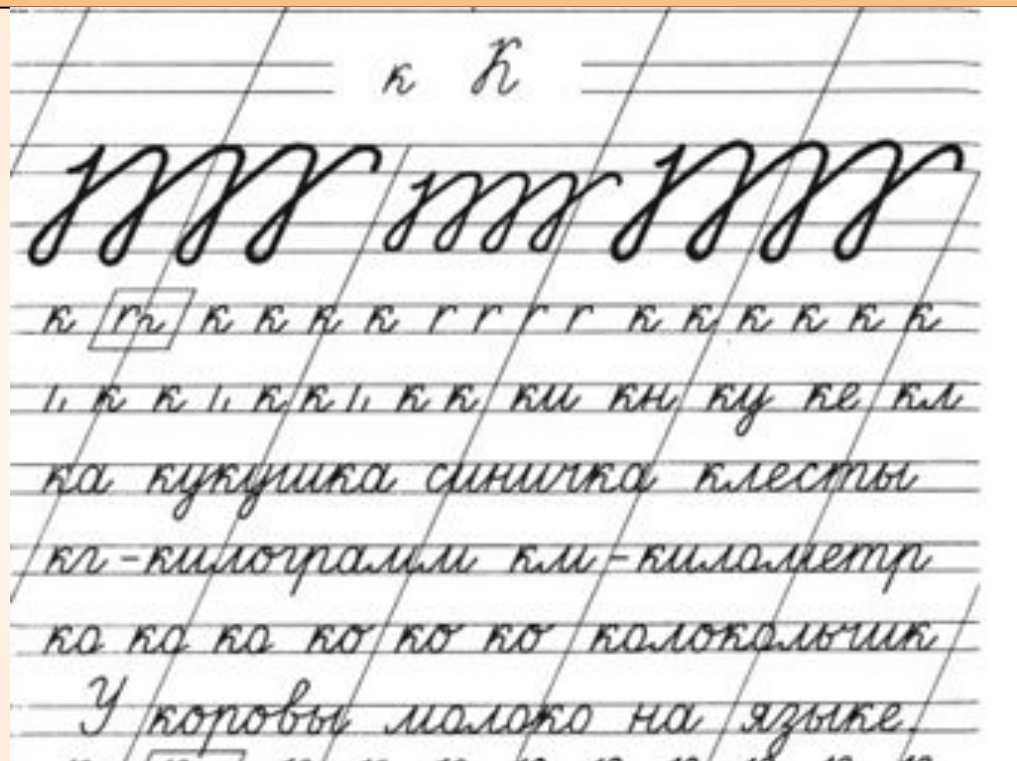 к К
к к к к к к к к к к к к
к к к к к к ки кн ку ке кл
ка кукушка синичка клесты
кг - килограмм км - километр
ка ка ка ко ко ко колокольчик
У коровы молоко на языке.